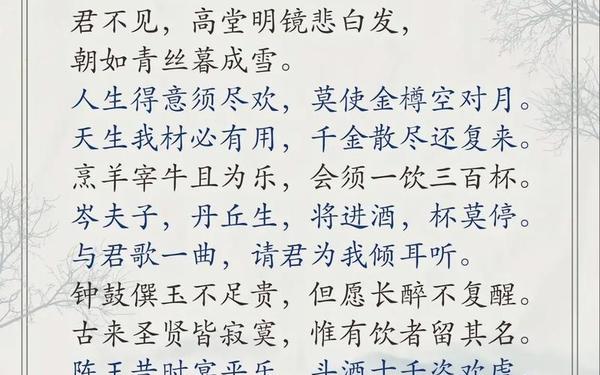 君不见，高堂明镜悲白发，
朝如青丝暮成雪。
人生得意须尽欢，莫使金樽空对月。
天生我材必有用，千金散尽还复来。
烹羊宰牛且为乐，会须一饮三百杯。
岑夫子，丹丘生，将进酒，杯莫停。
与君歌一曲，请君为我倾耳听。
钟鼓僎玉不足贵，但愿长醉不复醒。
古来圣贤皆寂寞，惟有饮者留其名。
陈王昔时宴平乐，斗酒十千恣欢虐